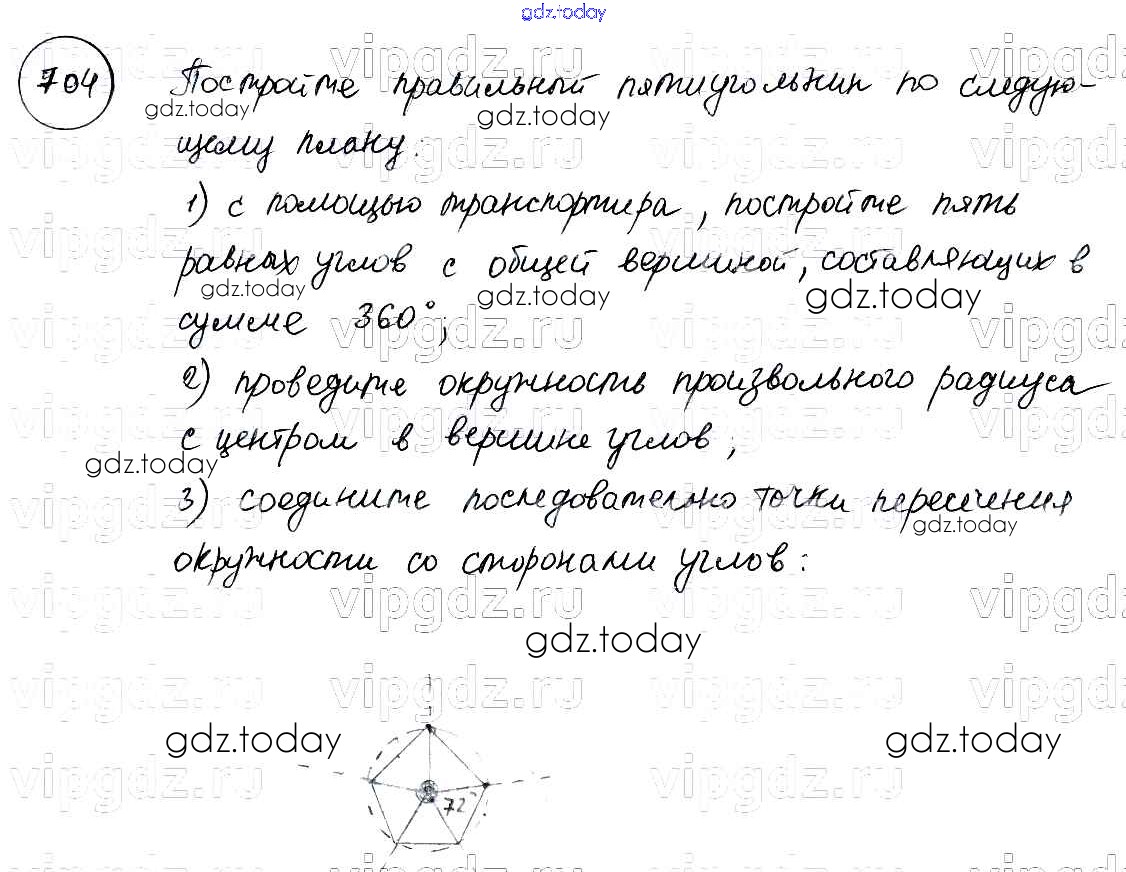 gdz.today
704
Постройте правильный пятиугольник по следую-
щему плану:
1) с помощью транспортира, постройте пять
равных углов с общей вершиной, составляющих в
сумме 360°;
2) проведите окружность произвольного радиуса
с центром в вершине углов;
3) соедините последовательно точки пересечения
окружности со сторонами углов:
72°